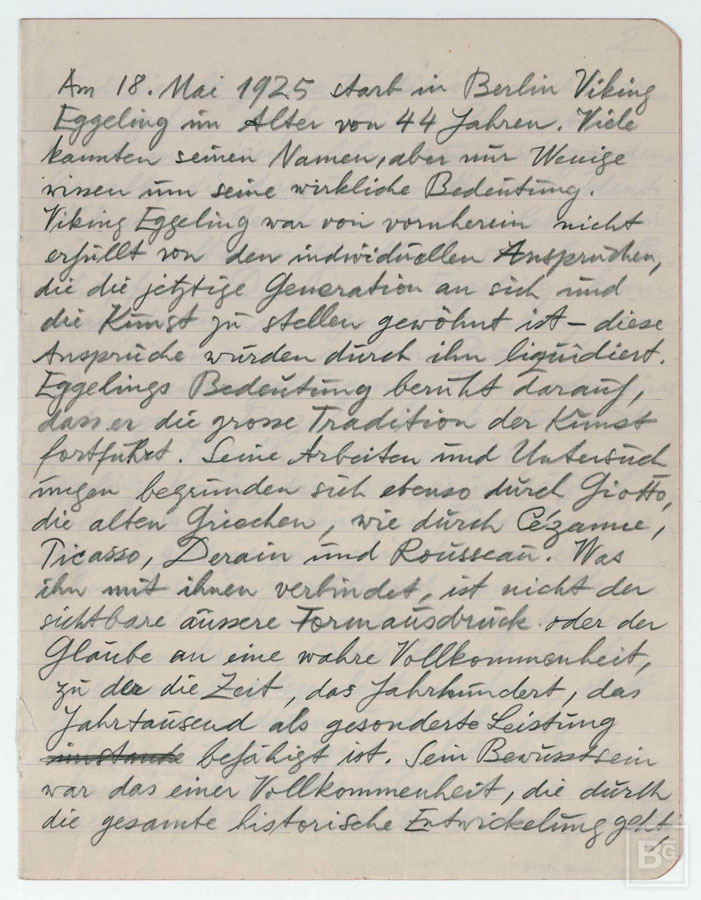 2
Am 18. Mai 1925 starb in Berlin Viking
Eggeling im Alter von 44 Jahren. Viele
kannten seinen Namen, aber nur Wenige
wissen um seine wirkliche Bedeutung.
Viking Eggeling war von vornherein nicht
erfüllt von den individuellen Ansprüchen,
die die jetztige Generation an sich und
die Kunst zu stellen gewöhnt ist – diese
Ansprüche wurden durch ihn liquidiert.
Eggelings Bedeutung beruht darauf,
dass er die grosse Tradition der Kunst
fortführt. Seine Arbeiten und Untersuch
ungen begründen sich ebenso durch Giotto,
die alten Griechen, wie durch Cézanne,
Picasso, Derain und Rousseau. Was
ihn mit ihnen verbindet, ist nicht der
sichtbare äussere Formausdruck oder der
Glaube an eine wahre Vollkommenheit,
zu der die Zeit, das Jahrhundert, das
Jahrtausend als gesonderte Leistung
imstande befähigt ist. Sein Bewusstsein
war das einer Vollkommenheit, die durch
die gesamte historische Entwickelung geht,
BG